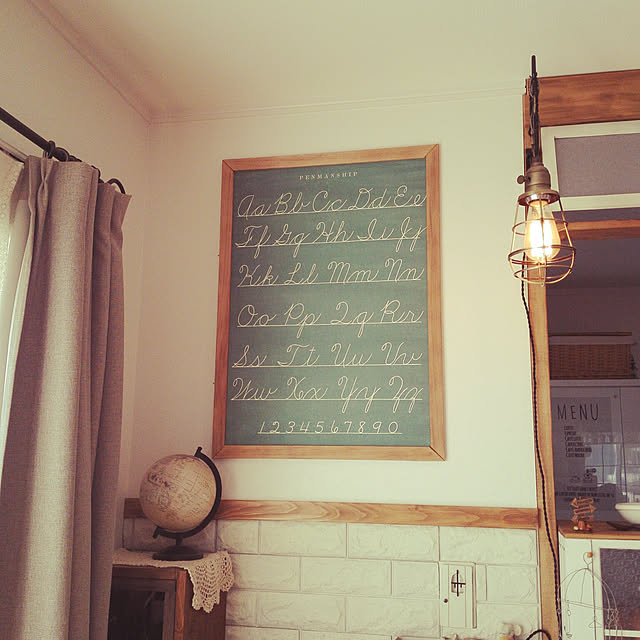 PENMANSHIP
Aa Bb Cc Dd Ee
Ff Gg Hh Ii Jj
Kk Ll Mm Nn
Oo Pp Qq Rr
Ss Tt Uu Vv
Ww Xx Yy Zz
1234567890
MENU